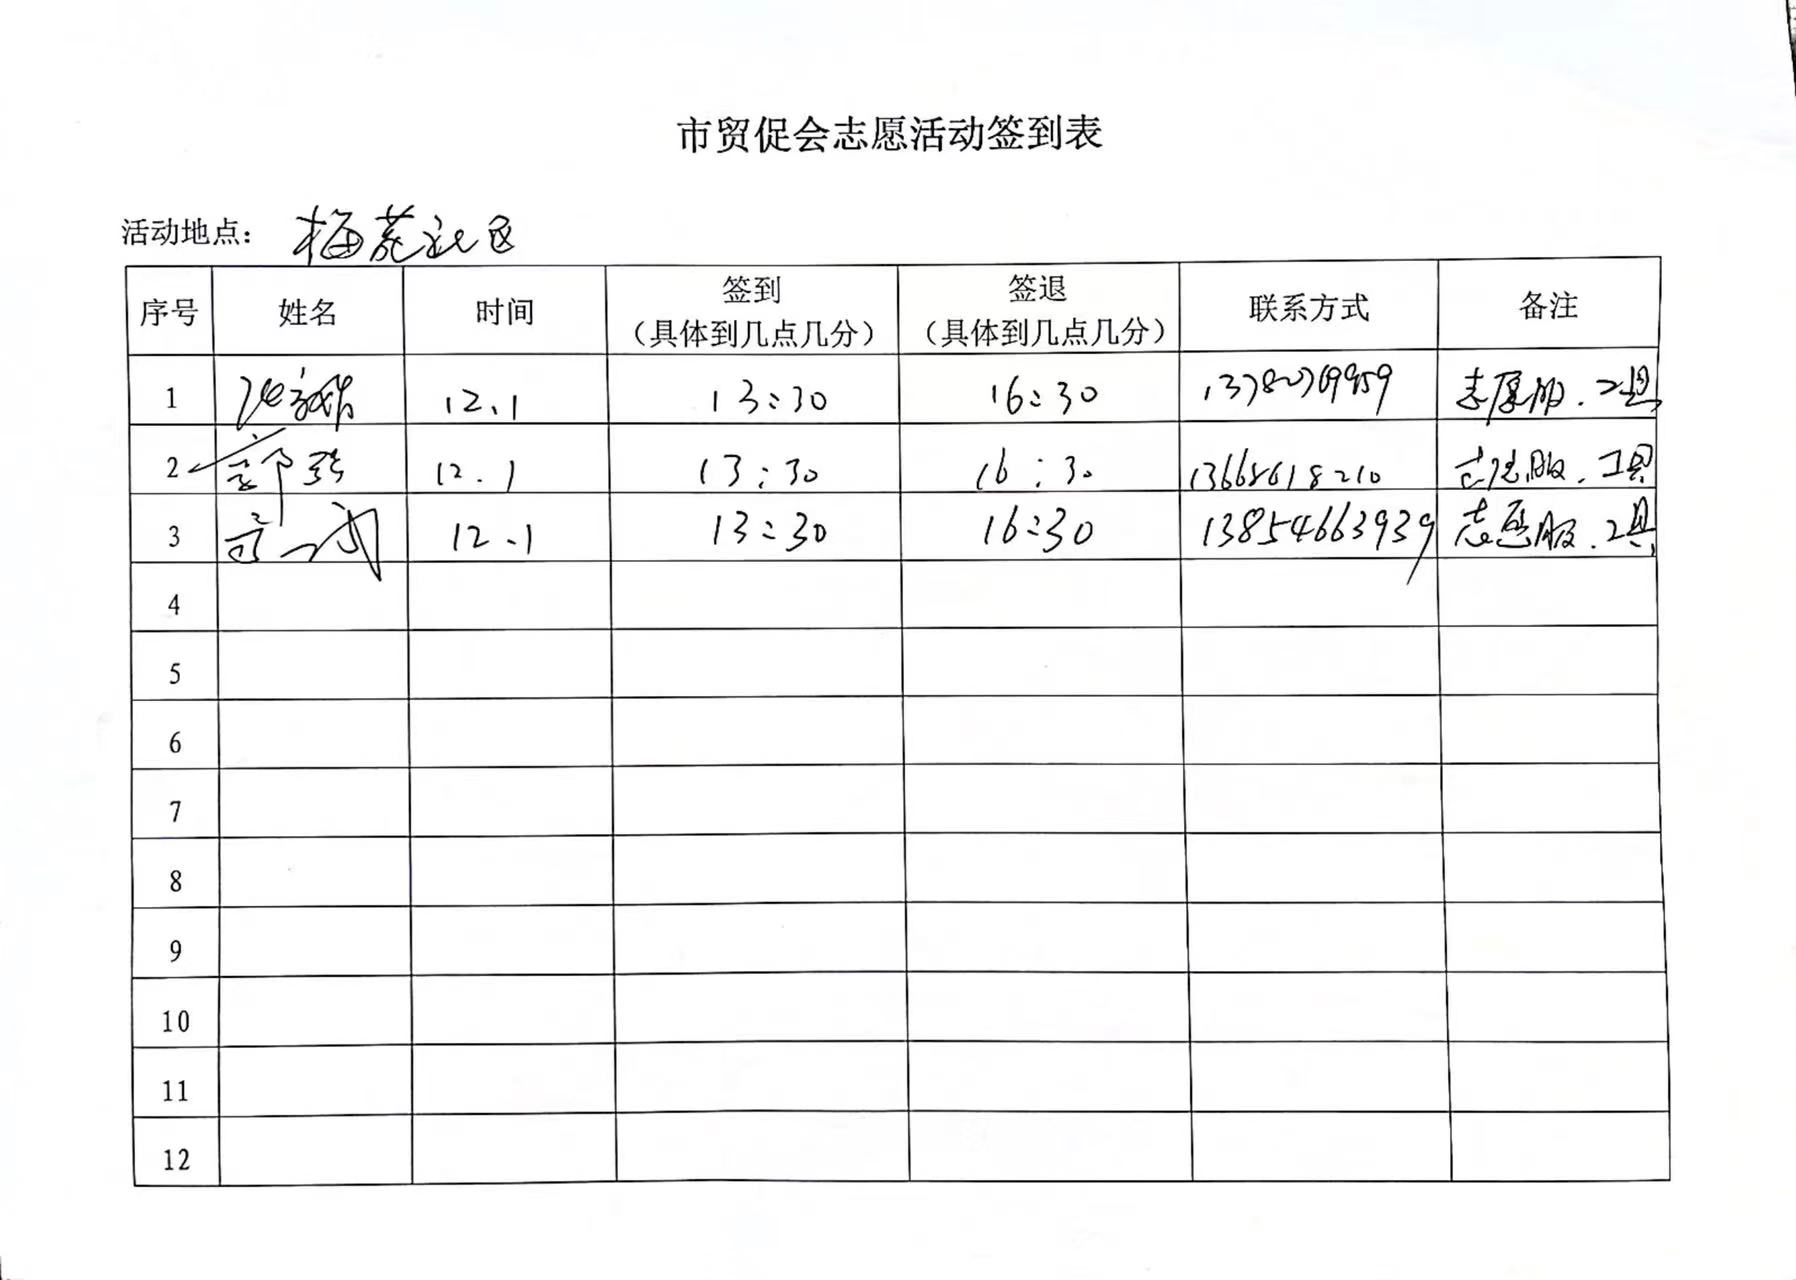 市贸促会志愿活动签到表
活动地点: 梅苑社区
序号 姓名 时间 签到 (具体到几点几分) 签退 (具体到几点几分) 联系方式 备注
1 12.1 13:30 16:30 志愿服.工具
2 12.1 13:30 16:30 13668618210 志愿服.工具
3 12.1 13:30 16:30 13854663939 志愿服.工具
4
5
6
7
8
9
10
11
12